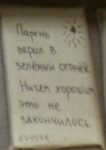 Парень
верил в
зелёный огонёк
Ничем хорошим
это не
закончилось